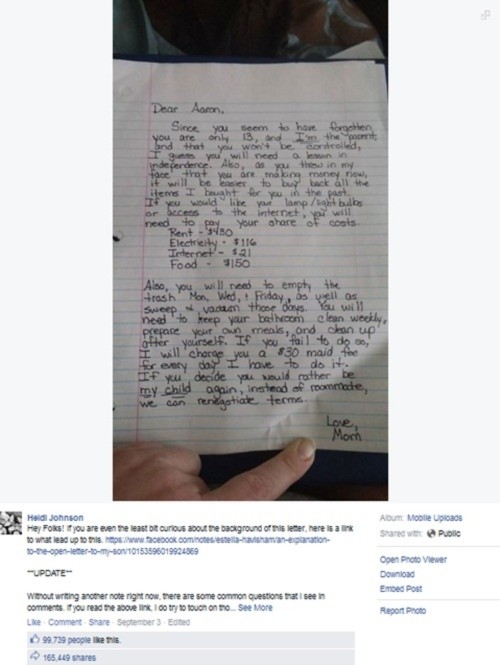 Dear Aaron,
Since you seem to have forgotten
you are only 13, and I'm the parent,
and that you won't be controlled,
I guess you will need a lesson in
independence. Also, as you threw in my
face that you are making money now,
it will be easier to buy back all the
items I bought for you in the past.
If you would like your lamp/lightbulbs
or access to the internet, you will
need to pay your share of costs.
Rent - $430
Electricity - $116
Internet - $21
Food - $150
Also, you will need to empty the
trash Mon, Wed, & Friday, as well as
sweep & vacuum those days. You will
need to keep your bathroom clean weekly,
prepare your own meals, and clean up
after yourself. If you fail to do so,
I will charge you a $30 maid fee
for every day I have to do it.
If you decide you would rather be
my child again, instead of roommate,
we can renegotiate terms.
Love,
Mom
Heidi Johnson
Hey Folks! If you are even the least bit curious about the background of this letter, here is a link
to what lead up to this. https://www.facebook.com/notes/estella-havisham/an-explanation-
to-the-open-letter-to-my-son/10153596019924869
**UPDATE**
Without writing another note right now, there are some common questions that I see in
comments. If you read the above link, I do try to touch on tho... See More
Like · Comment · Share · September 3 · Edited
99,739 people like this.
165,449 shares
Album: Mobile Uploads
Shared with: Public
Open Photo Viewer
Download
Embed Post
Report Photo